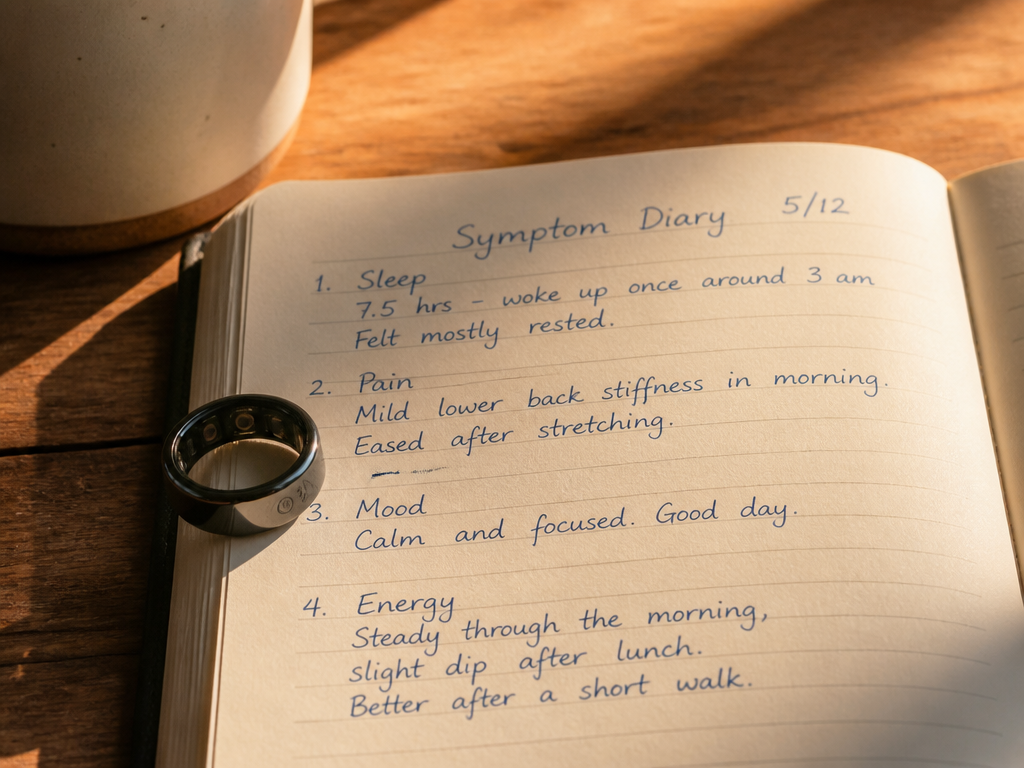 Symptom Diary 5/12
1. Sleep
7.5 hrs – woke up once around 3 am
Felt mostly rested.
2. Pain
Mild lower back stiffness in morning.
Eased after stretching.
3. Mood
Calm and focused. Good day.
4. Energy
Steady through the morning,
slight dip after lunch.
Better after a short walk.